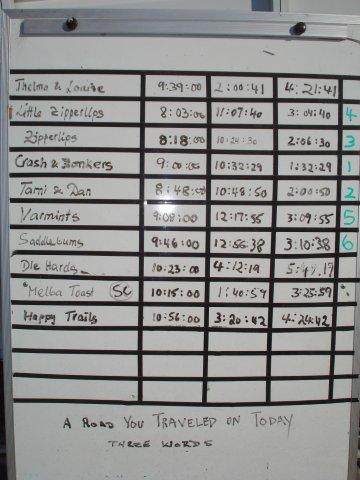 Thelma & Louise 9:39:00 2:00:41 4:21:41
Little Zipperlips 8:03:00 11:07:40 3:04:40 4
Zipperlips 8:18:00 10:24:30 2:06:30 3
Crash & Bonkers 9:00:00 10:32:29 1:32:29 1
Tami & Dan 8:48:00 10:48:50 2:00:50 2
Varmints 9:08:00 12:17:55 3:09:55 5
Saddlebums 9:46:00 12:56:38 3:10:38 6
Die Hards 10:23:00 4:12:19
Melba Toast 10:15:00 1:40:59 3:25:59
Happy Trails 10:56:00 3:20:42 4:24:42
A ROAD YOU TRAVELED ON TODAY
THREE WORDS